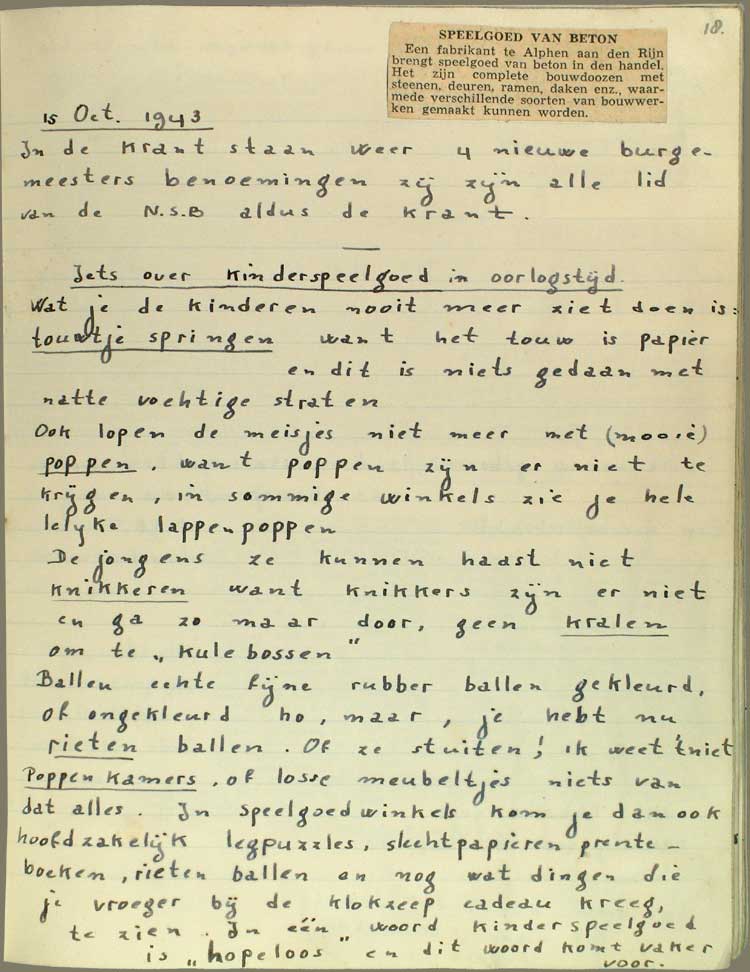 18.
SPEELGOED VAN BETON
Een fabrikant te Alphen aan den Rijn
brengt speelgoed van beton in den handel.
Het zijn complete bouwdoozen met
steenen, deuren, ramen, daken enz., waar-
mede verschillende soorten van bouwwer-
ken gemaakt kunnen worden.
15 Oct. 1943
In de krant staan weer 4 nieuwe burge-
meesters benoemingen zij zijn alle lid
van de N.S.B aldus de krant.
Iets over kinderspeelgoed in oorlogstijd.
Wat je de kinderen nooit meer ziet doen is:
touwtje springen want het touw is papier
en dit is niets gedaan met
natte vochtige straten
Ook lopen de meisjes niet meer met (mooie)
poppen, want poppen zijn er niet te
krijgen, in sommige winkels zie je hele
lelyke lappenpoppen
De jongens ze kunnen haast niet
knikkeren want knikkers zijn er niet
en ga zo maar door, geen kralen
om te „kulebossen"
Ballen echte fijne rubber ballen gekleurd,
of ongekleurd ho, maar, je hebt nu
rieten ballen. Of ze stuiten! ik weet 't niet
Poppenkamers, of losse meubeltjes niets van
dat alles. In speelgoedwinkels kom je dan ook
hoofdzakelijk legpuzzles, slechtpapieren prente-
boeken, rieten ballen en nog wat dingen die
je vroeger bij de klokzeep cadeau kreeg,
te zien. In één woord kinderspeelgoed
is „hopeloos" en dit woord komt vaker
voor.